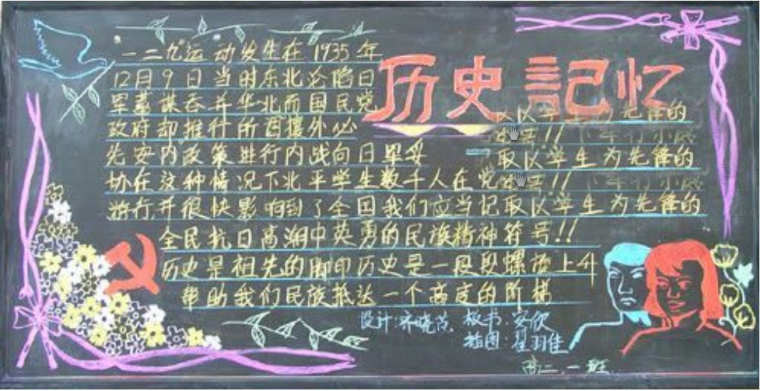 历史記忆
一二九运动发生在1935年
12月9日当时东北沦陷日
军蓄谋吞并华北而国民党
政府却推行所 攘外必
取以学生为先锋的
先安内政策进行内战向日军妥
取以学生为先锋的
协在这种情况下北平学生数千人在党
游行并很快影响到了全国我们应当记取以学生为先锋的
全民抗日高潮中英勇的民族精神符号!!
历史是祖先的脚印历史是一段段螺旋上升
帮助我们民族抵达一个高度的阶梯
设计:齐晓 板书:安欣
插图: 羽佳
高二.一班